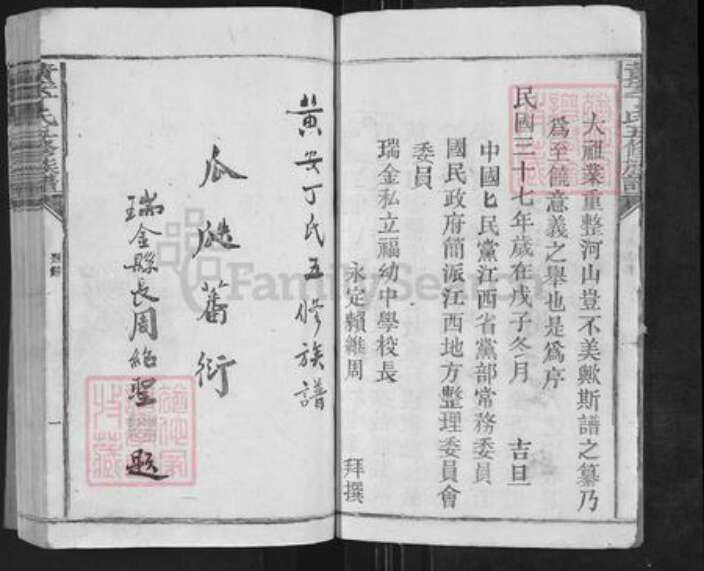 大祖業重整河山豈不美歟斯譜之纂乃
為至饒意義之舉也是為序
民國三十七年歲在戊子冬月　吉旦
中國民黨江西省黨部常務委員
國民政府簡派江西地方整理委員會
委員
瑞金私立福幼中學校長
永定賴維周　拜撰
黃安丁氏五修族譜
瓜瓞蕃衍
瑞金縣長周紹聖題
黃安丁氏五修族譜
一
FamilySearch